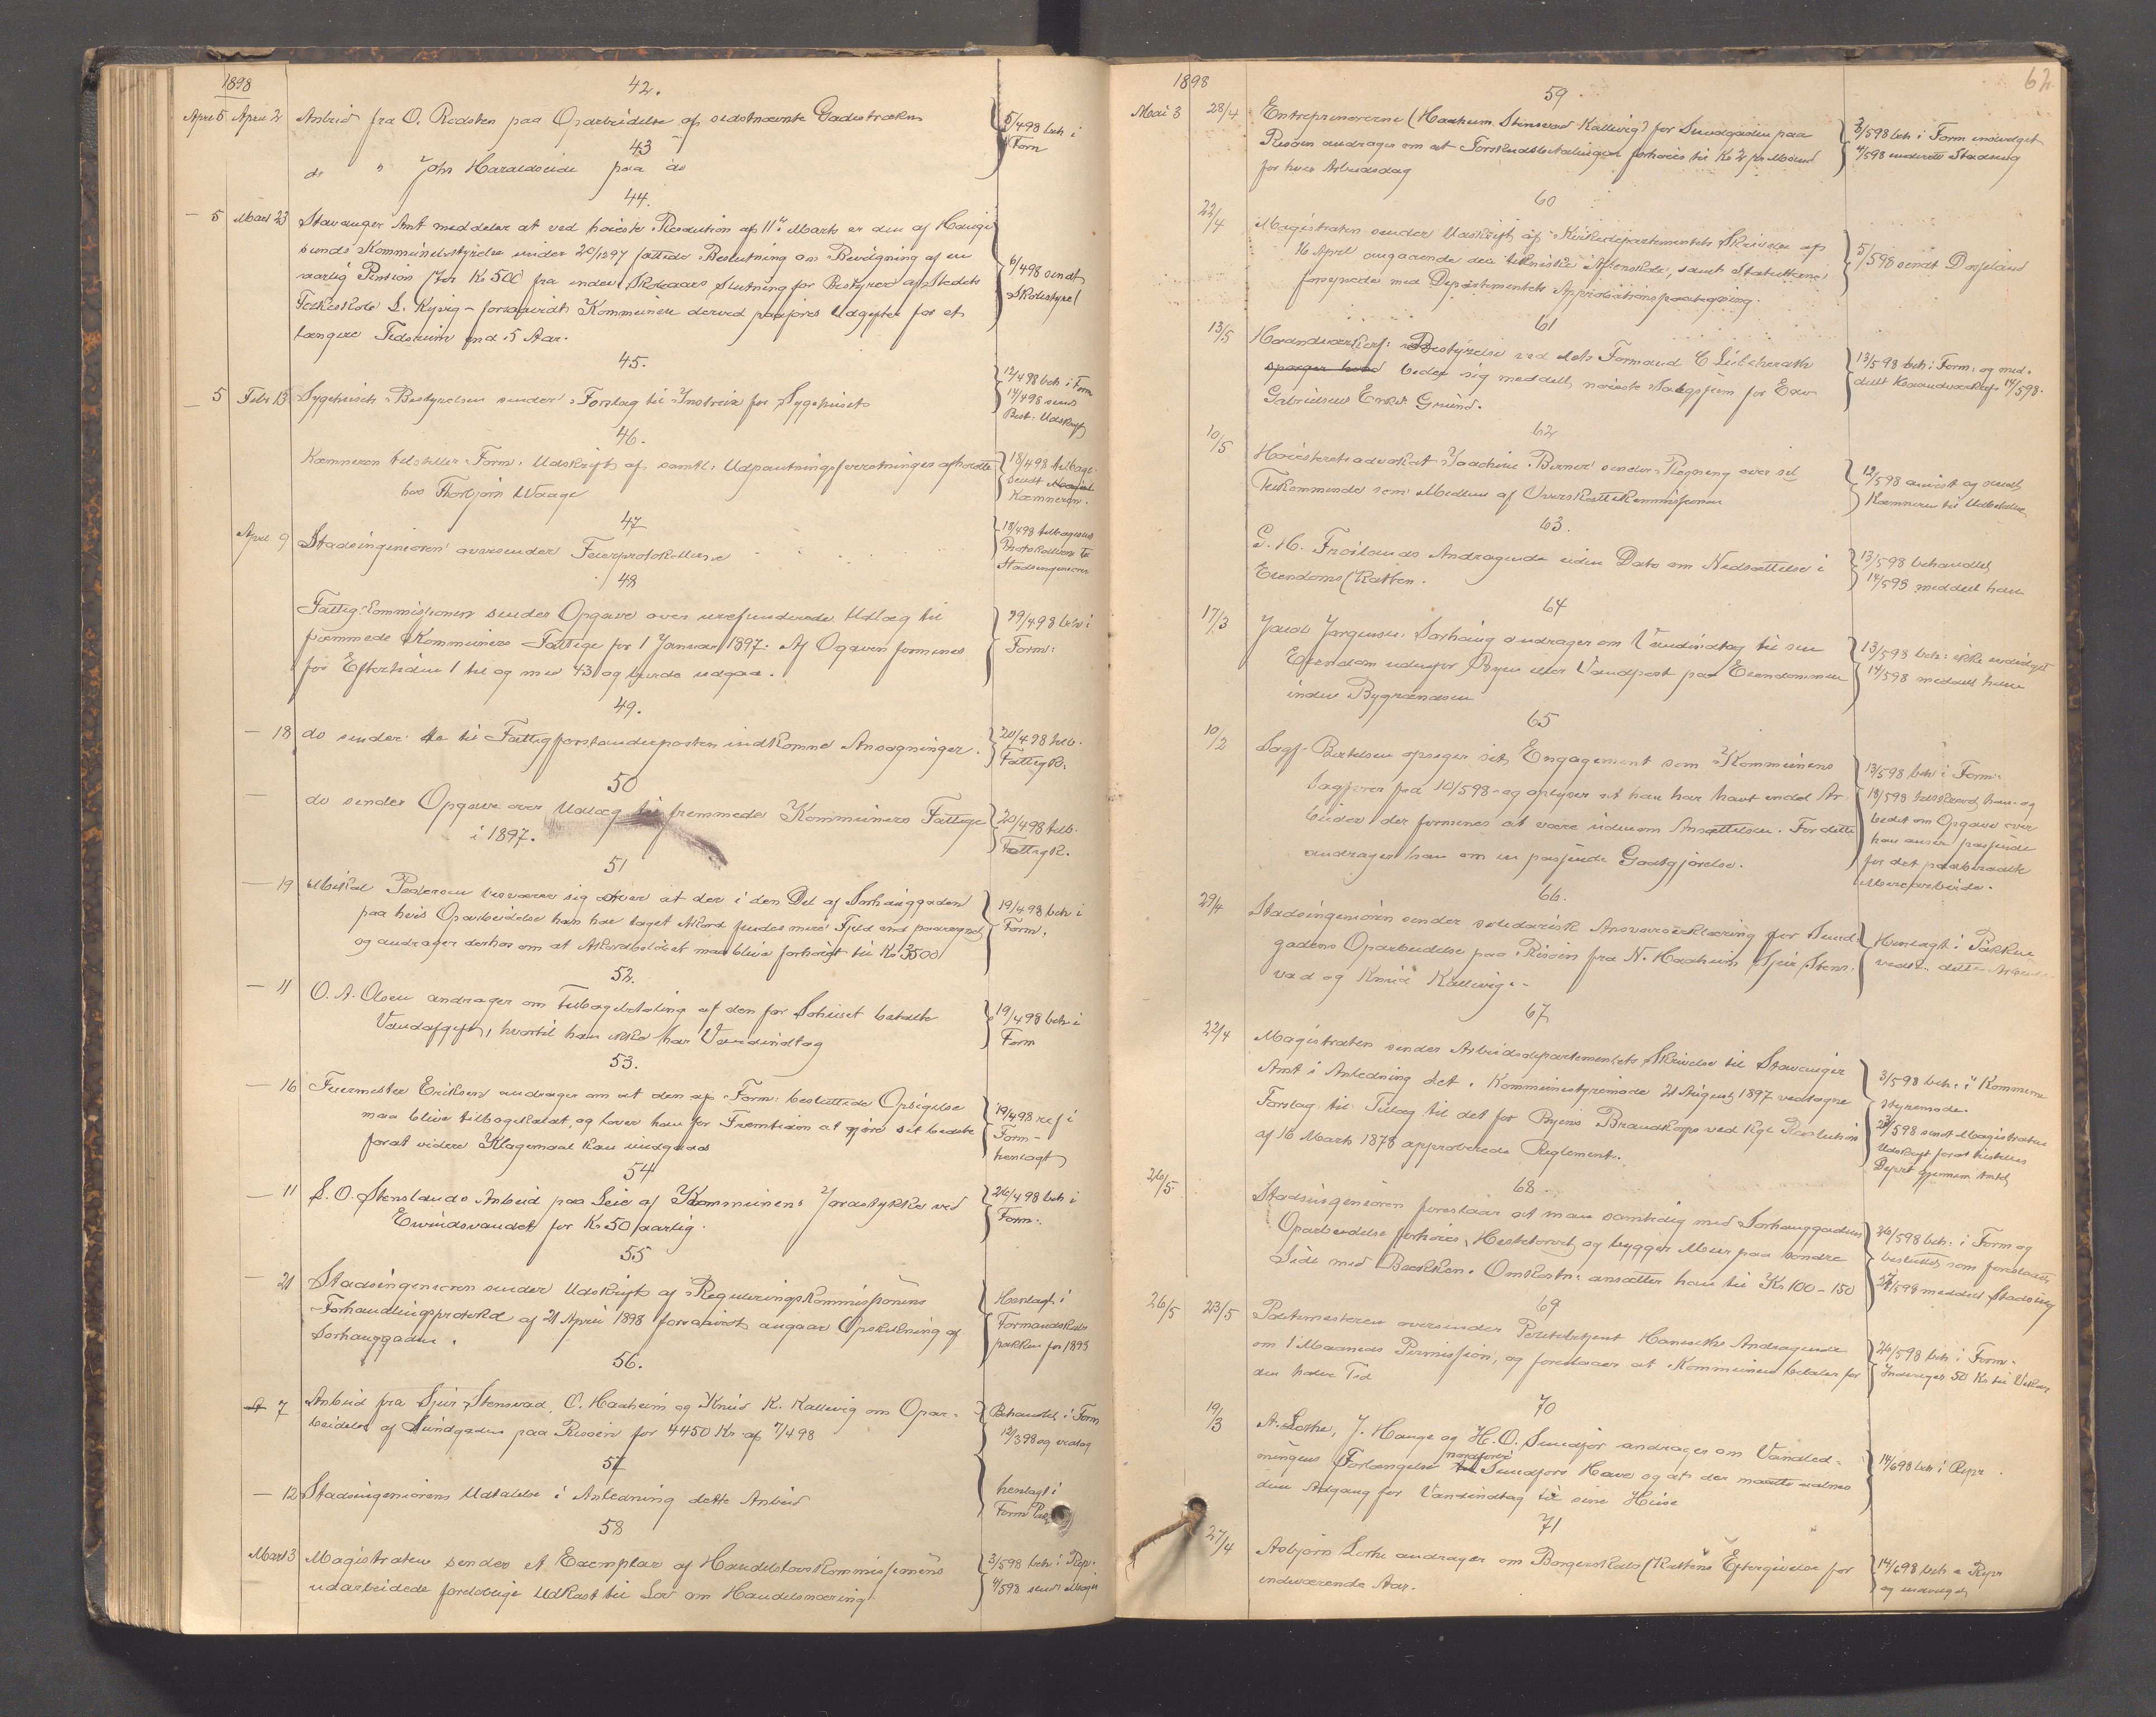 1898
42.
April 5 April 2 Anbud fra O. Rødsten paa Oparbeidelse af sidstnævnte Gadestrækn { 5/4 98 beh i
Form
43
do " John Haraldseide paa do
44.
— 5 Marts 23 Stavanger Amt meddeler at ved høieste Resolution af 11te Marts er den af Hauge
sunds Kommunebestyrelse under 20/12 97 fattede Beslutning om Bevilgning af en
aarlig Pension stor Kr 500 fra indev. Skoleaars Slutning for Bestyrer af Stedets
Folkeskole S. Kyvig – forsaavidt Kommunen derved paaføres Udgifter for et
længere Tidsrum end 5 Aar.
6/4 98 sendt
Skolestyret
45.
5 Febr 13 Sygehusets Bestyrelse sender Forslag til Instrux for Sygehuset
12/4 98 beh i Form
14/4 98 send
Best. Udskrift
46.
Kæmneren tilstiller Form. Udskrift af samtl. Udpantningsforretninger afholdte
hos Thorbjørn Waage
18/4 98 tilbage
sendt
Kæmneren.
47
April 9 Stadsingeniøren oversender Feierprotokollerne
18/4 98 tilbagesend
Protokollerne til
Stadsingeniøren
48
Fattig Kommissionen sender Opgave over urefunderede Udlæg til
fremmede Kommuners Fattige før 1 Januar 1897. Af Ogaven formenes
for Eftertiden 1 til og med 43 og burde udgaa.
19/4 98 beh i
Form:
49.
— 18 do sender de til Fattigforstanderposten indkomne Ansøgninger.
20/4 98 tilb.
Fattigk.
50
— do sender Opgave over Udlæg til fremmede Kommuners Fattige
i 1897.
20/4 98 tilb.
Fattigk.
51
— 19 Mikal Pedersen besværer sig over at der i den Del af Sørhauggaden
paa hvis Oparbeidelse han har taget Akord findes mere Fjeld end paaregnet
og andrager derhos om at Akordbeløbet maa blive forhøiet til Kr 3500
19/4 98 beh i
Form.
52.
— 11 O. A. Olsen andrager om Tilbagebetaling af den for Søhuset betalte
Vandafgift, hvortil han ikke har Vandindtag
19/4 98 beh i
Form
53.
— 16 Feiermester Eriksen andrager om at den af Form: besluttede Opsigelse
maa blive tilbagekaldt, og lover han for Fremtiden at gjøre sit bedste
forat videre Klagemaal kan undgaaes
19/4 98 ref i
Form –
henlagt
54
— 11 S. O. Stenslands Anbud paa Leie af Kommunens Jordstykke ved
Eivindsvandet for Kr 50 aarlig.
26/4 98 beh i
Form:
55
— 21 Stadsingeniøren sender Udskrift af Reguleringskommissionens
Forhandlingsprotokol af 21 April 1898 forsaavidt angaar Opstikning af
Sørhauggaden.
Henlagt i
Formandskabs
pakken for 1898
56.
7 Anbud fra Sjur Stensvad, O. Haaheim og Knud K. Kallevig om Opar-
beidelse af Sundgaden paa Risøen for 4450 Kr af 7/4 98
Behandlet i Form
12/3 98 og vedtog
57
— 12 Stadsingeniørens Udtalelse i Anledning dette Anbud
henlagt i
Form
58
Marts 3 Magistraten sender et Exemplar af Handelslovkommissionens
udarbeidede foreløbige Udkast til Lov om Handelsnæring.
3/5 98 beh: i Repr.
4/5 98 sendt Magist
62
1898
59.
Mai 3 28/4 Entreprenørerne (Haaheim, Stensvad Kallevig) for Sundgaden paa
Risøen andrager om at Forskudsbetalingen forhøies til Kr 2 pr Mand
for hver Arbeidsdag
3/5 98 beh i Form indvilget
4/5 98 underr. Stadsing
60
22/4 Magistraten sender Udskrift af Kirkedepartementets Skrivelse af
16 April angaaende den tekniske Aftenskole, samt Statutterne
forsynede med Departementets Approbationspaategning.
5/5 98 sendt Døseland
61
13/5 Haandværkerf: Bestyrelse ved dets Formand C Lütcherath
beder sig meddelt nøieste Salgssum for Exv
Gabrielsens Enkes Grund.
13/5 98 beh i Form. og med-
delt Haandværkerf. 14/5 98.
62
10/5 Høiesteretsadvokat Joachim Berner sender Regning over sit
Tilkommende som Medlem af Overskattekommissionen
12/5 98 anvist og sendt
Kæmneren til Udbetaling
63.
G. H. Frøilands Andragende uden Dato om Nedsættelse i
Eiendomsskatten.
13/5 98 behandlet
14/5 98 meddelt ham
64
17/3 Jacob Jørgensen Sørhaug andrager om Vandindtag til sin
Eiendom udenfor Byen eller Vandpost paa Eiendommen
inden Bygrændsen
13/5 98 beh: ikke indvilget
14/5 98 meddelt ham
65
10/2 Sagf. Bertelsen opsiger sit Engagement som Kommunens
Sagfører fra 10/5 98 og oplyser at han har havt endel Ar-
beider der formenes at være udenom Ansættelsen. For dette
andrager han om en passende Godtgjørelse.
13/5 98 beh i Form:
18/5 98 tilskrevet ham og
bedet om Opgave over
han anser passende
for det paaberaabte
Merearbeide.
66.
29/4 Stadsingeniøren sender solidarisk Ansvarserklæring for Sund-
gadens Oparbeidelse paa Risøen fra N. Haaheim Sjur Stens-
vad og Knud Kallevig.-
Henlagt i Pakken
vedk. dette Arbeide
67
22/4 Magistraten sender Arbeidsdepartementets Skrivelse til Stavanger
Amt i Anledning det i Kommunestyremøde 21 August 1897 vedtagne
Forslag til Tillæg til det for Byens Brandkorps ved Kgl Resolution
af 16 Marts 1878 approberede Reglement.
3/5 98 beh: i Kommune
styremøde.
/5 98 sendt Magistraten
Udskrift forat tilstilles
Depart gjennem Amtet
68.
26/5. Stadsingeniøren foreslaar at man samtidig med Sørhauggadens
Oparbeidelse forhøies Hestetorvet og bygger Mur paa søndre
Side med Bækken. Omkostn: ansætter han til Kr 100 – 150
26/5 98 beh: i Form og
besluttet som foreslaaet
27/5 98 meddelt Stadsing
69
26/5 23/5 Politimesteren oversender Politibetjent Haneseths Andragende
om 1 Maaneds Permission, og foreslaaer at Kommunen betaler for
den halve Tid
26/5 98 beh i Form:
Indvilget 50 Kr til Vikar
70
19/3 A. Lothe, J. Hauge og H. O. Smedjor andrager om Vandled-
ningens Forlængelse nordover Smedjors Have og at der maatte aabnes
dem Adgang for Vandindtag til sine Huse
14/6 98 beh i Repr
71
27/4 Asbjørn Lothe andrager om Borgerskabs Skattens Eftergivelse for
indeværende Aar.
14/6 98 beh i Repr
og indvilget